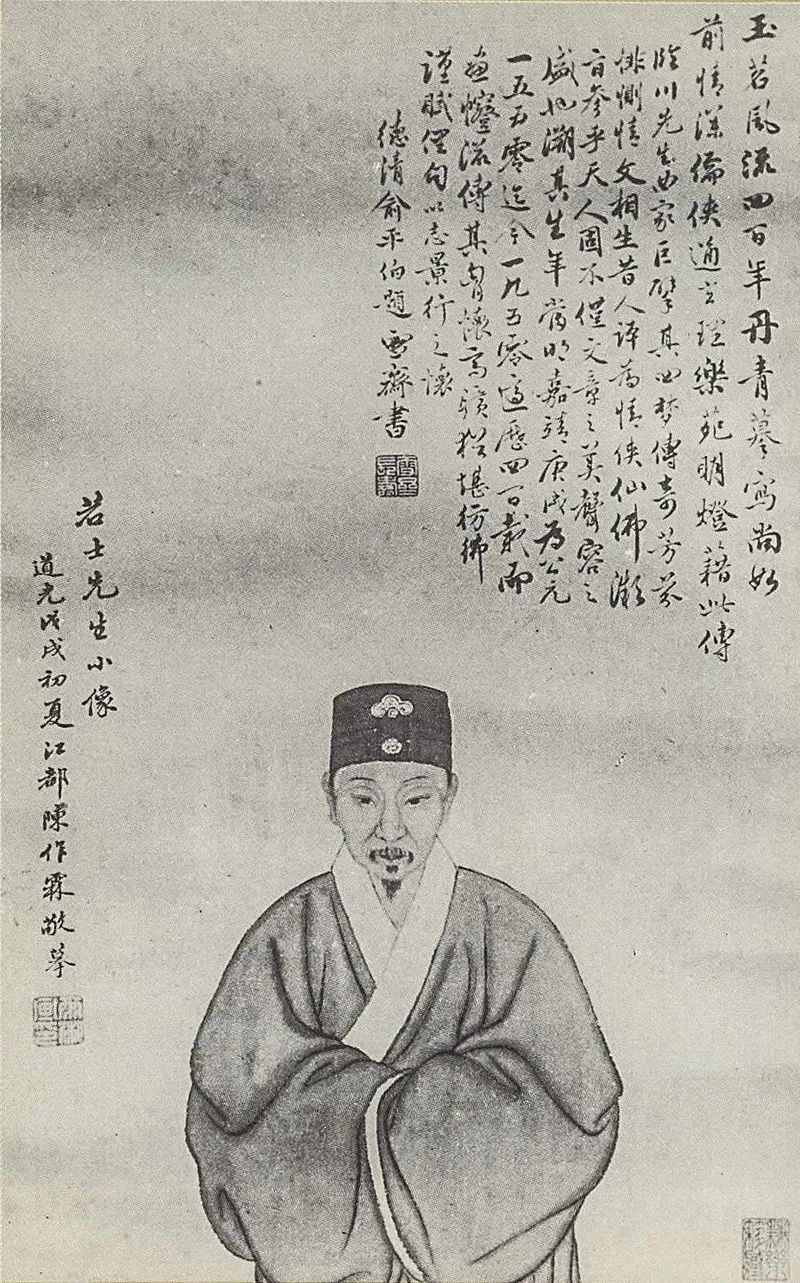 玉茗風流四百年丹青摹寫尚如
前情深儒俠通玄理樂苑明燈藉此傳
臨川先生曲家巨擘其四夢傳奇芳芬
悱惻情文相生昔人評為情俠仙佛微
旨參乎天人固不僅文章之美聲容之
盛也溯其生年當明嘉靖庚戌為公元
一五五零迄今一九五零適歷四百載而
傳其胷懷高曠猶堪彷彿
謹賦俚句以志景行之懷
德清俞平伯題雪齋書
若士先生小像
道光戊戌初夏江都陳作霖敬摹